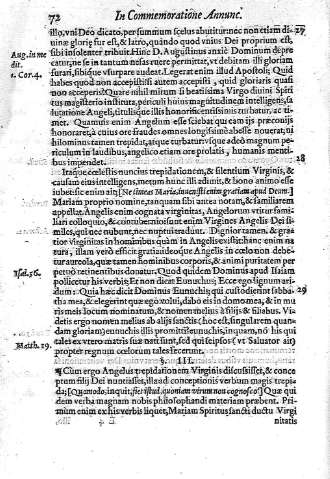 72 In Commemoratione Annunc.
illo, vni Deo dicato, per summum scelus abutitur: nec non etiam di- 27
uinæ gloriæ fur est, & latro, quando quod vnius Dei proprium est,
sibi insolenter tribuit. Hinc D. Augustinus anxiè Dominum depre
Aug. in me catur, ne se in tantum nefas ruere permittat, vt debitam illi gloriam
dit. furari, sibique vsurpare audeat. Legerat enim illud Apostoli; Quid
1. Cor. 4. habes quod non accepisti? si autem accepisti, quid gloriaris quasi
non acceperis? Quare nihil mirum si beatissima Virgo diuini Spiri
tus magisterio instituta, periculi huius magnitudinem intelligens, sa
lutatione Angeli, titulisque illis honorificentissimis turbatur, ac ti-
met. Quamuis enim Angelum esse sciebat qui eam ijs præconijs
honoraret, à cuius ore fraudes omnes longissimè abesse nouerat, ni
hilominus tamen trepidat, atque turbatur; vsque adeò magnum pe-
riculum in laudibus, angelico etiam ore prolatis, humanis menti
bus impendet. 28
Itaque cœlestis nuncius trepidationem, & silentium Virginis, &
causam eius intelligens, metum hunc illi adimit, & bono animo esse
iubet: sic enim ait; [Ne timeas Maria, inuenisti enim gratiam apud Deum.]
Mariam proprio nomine, tanquam sibi antea notam, & familiarem
appellat. Angelis enim cognata virginitas, Angelorum vtitur fami-
liari colloquio, & contubernio: sunt enim Virgines Angelis Dei si-
miles, qui nec nubunt, nec nuptui tradunt. Dignior tamen, & gra
tior virginitas in hominibus quàm in Angelis existit: hanc enim na
tura, illam verò efficit gratia: ideoque Angelis in cœlo non debe-
tur aureola, quæ tamen hominibus corporis, & animi puritatem per
Isai. 56. petuò retinentibus donatur. Quod quidem Dominus apud Isaiam
pollicetur his verbis; Et non dicat Eunuchus; Ecce ego lignum ari-
dum: Quia hæc dicit Dominus Eunuchis; qui custodierint sabba- 29
tha mea, & elegerint quæ ego volui, dabo eis in domo mea, & in mu
ris meis locum nominatum, & nomen melius à filijs & filiabus. Vi
detis ergo nomen melius ab alijs sanctis (hoc est, singularem quan-
dam gloriam) eunuchis illis promitti: eunuchis, inquam, nó his qui
Matth. 19. tales ex vtero matris suæ nati sunt, sed qui seipsos (vt Saluator ait)
propter regnum cœlorum tales fecerunt.
§. III.
¶ Cùm ergo Angelus trepidationem Virginis discussisset, & conce
ptum filij Dei nuntiasset, illa ad conceptionis verbum magis trepi
da; [Quomodo, inquit, fiet istud, quoniam virum non cognosco?] Quæ qui
dem verba magnam nobis philosophandi materiam præbent. Pri-
mùm enim ex his verbis liquet, Mariam Spiritus sancti ductu Virgi
nitatis